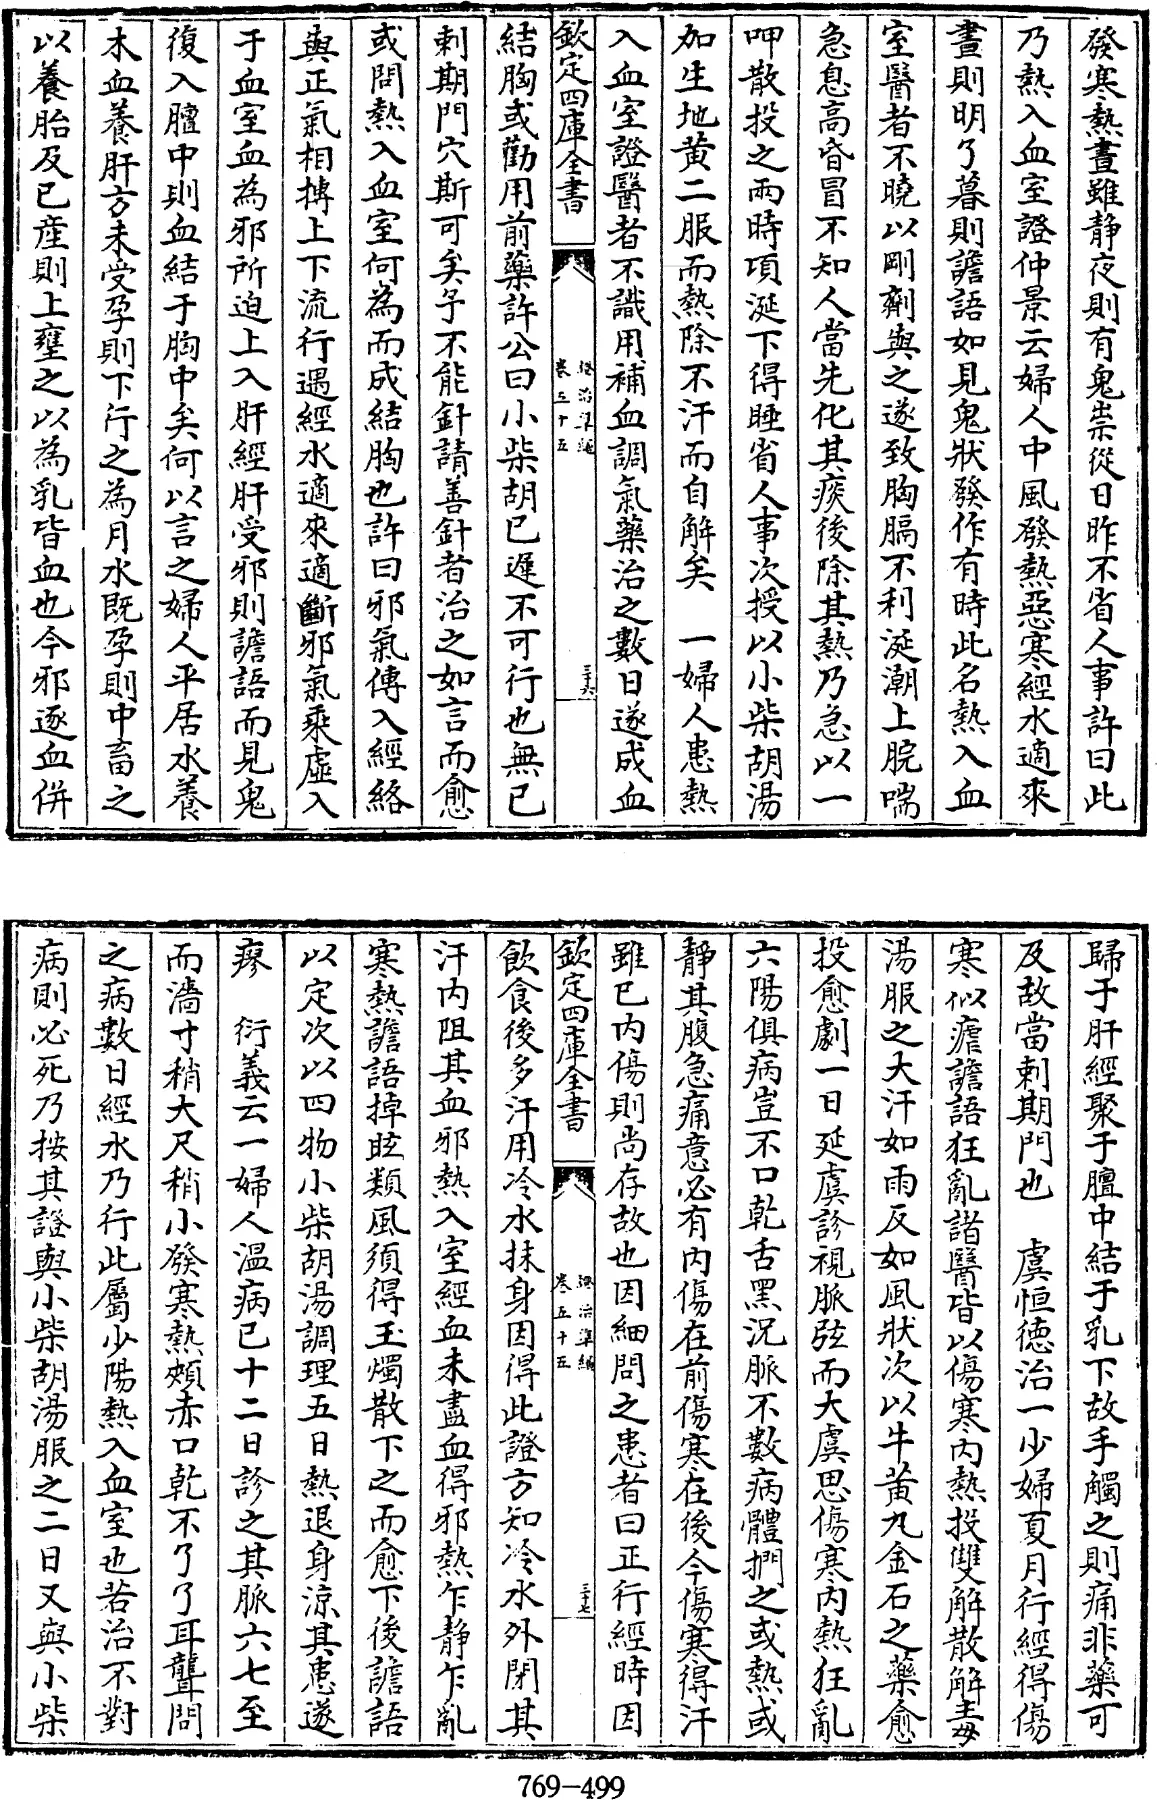 發寒熱晝雖静夜則有鬼祟從日昨不省人事許曰此
乃熱入血室證仲景云婦人中風發熱惡寒經水適來
晝則明了暮則譫語如見鬼狀發作有時此名熱入血
室醫者不曉以剛劑與之遂致胸膈不利涎潮上脘喘
急息高昏冒不知人當先化其痰後除其熱乃急以一
呷散投之兩時頃涎下得睡省人事次授以小柴胡湯
加生地黄二服而熱除不汗而自解矣　一婦人患熱
入血室證醫者不識用補血調氣藥治之數日遂成血
欽定四庫全書
證治準繩
卷五十五
三十六
結胸或勸用前藥許公曰小柴胡已遲不可行也無已
刺期門穴斯可矣予不能針請善針者治之如言而愈
或問熱入血室何為而成結胸也許曰邪氣傳入經絡
與正氣相搏上下流行遇經水適來適斷邪氣乘虛入
于血室血為邪所迫上入肝經肝受邪則譫語而見鬼
復入膻中則血結于胸中矣何以言之婦人平居水養
木血養肝方未受孕則下行之為月水既孕則中畜之
以養胎及已產則上壅之以為乳皆血也今邪逐血併
歸于肝經聚于膻中結于乳下故手觸之則痛非藥可
及故當刺期門也　虞恒德治一少婦夏月行經得傷
寒似瘧譫語狂亂諸醫皆以傷寒内熱投雙解散解毒
湯服之大汗如雨反如風狀次以牛黄丸金石之藥愈
投愈劇一日延虞診視脈弦而大虞思傷寒内熱狂亂
六陽俱病豈不口乾舌黑況脈不數病體捫之或熱或
靜其腹急痛意必有内傷在前傷寒在後今傷寒得汗
雖已内傷則尚存故也因細問之患者曰正行經時因
欽定四庫全書
證治準繩
卷五十五
三十七
飲食後多汗用冷水抹身因得此證方知冷水外閉其
汗内阻其血邪熱入室經血未盡血得邪熱乍静乍亂
寒熱譫語掉眩類風須得玉燭散下之而愈下後譫語
以定次以四物小柴胡湯調理五日熱退身涼其患遂
瘳　衍義云一婦人温病已十二日診之其脈六七至
而濇寸稍大尺稍小發寒熱頰赤口乾不了了耳聾問
之病數日經水乃行此屬少陽熱入血室也若治不對
病則必死乃按其證與小柴胡湯服之二日又與小柴
769-499